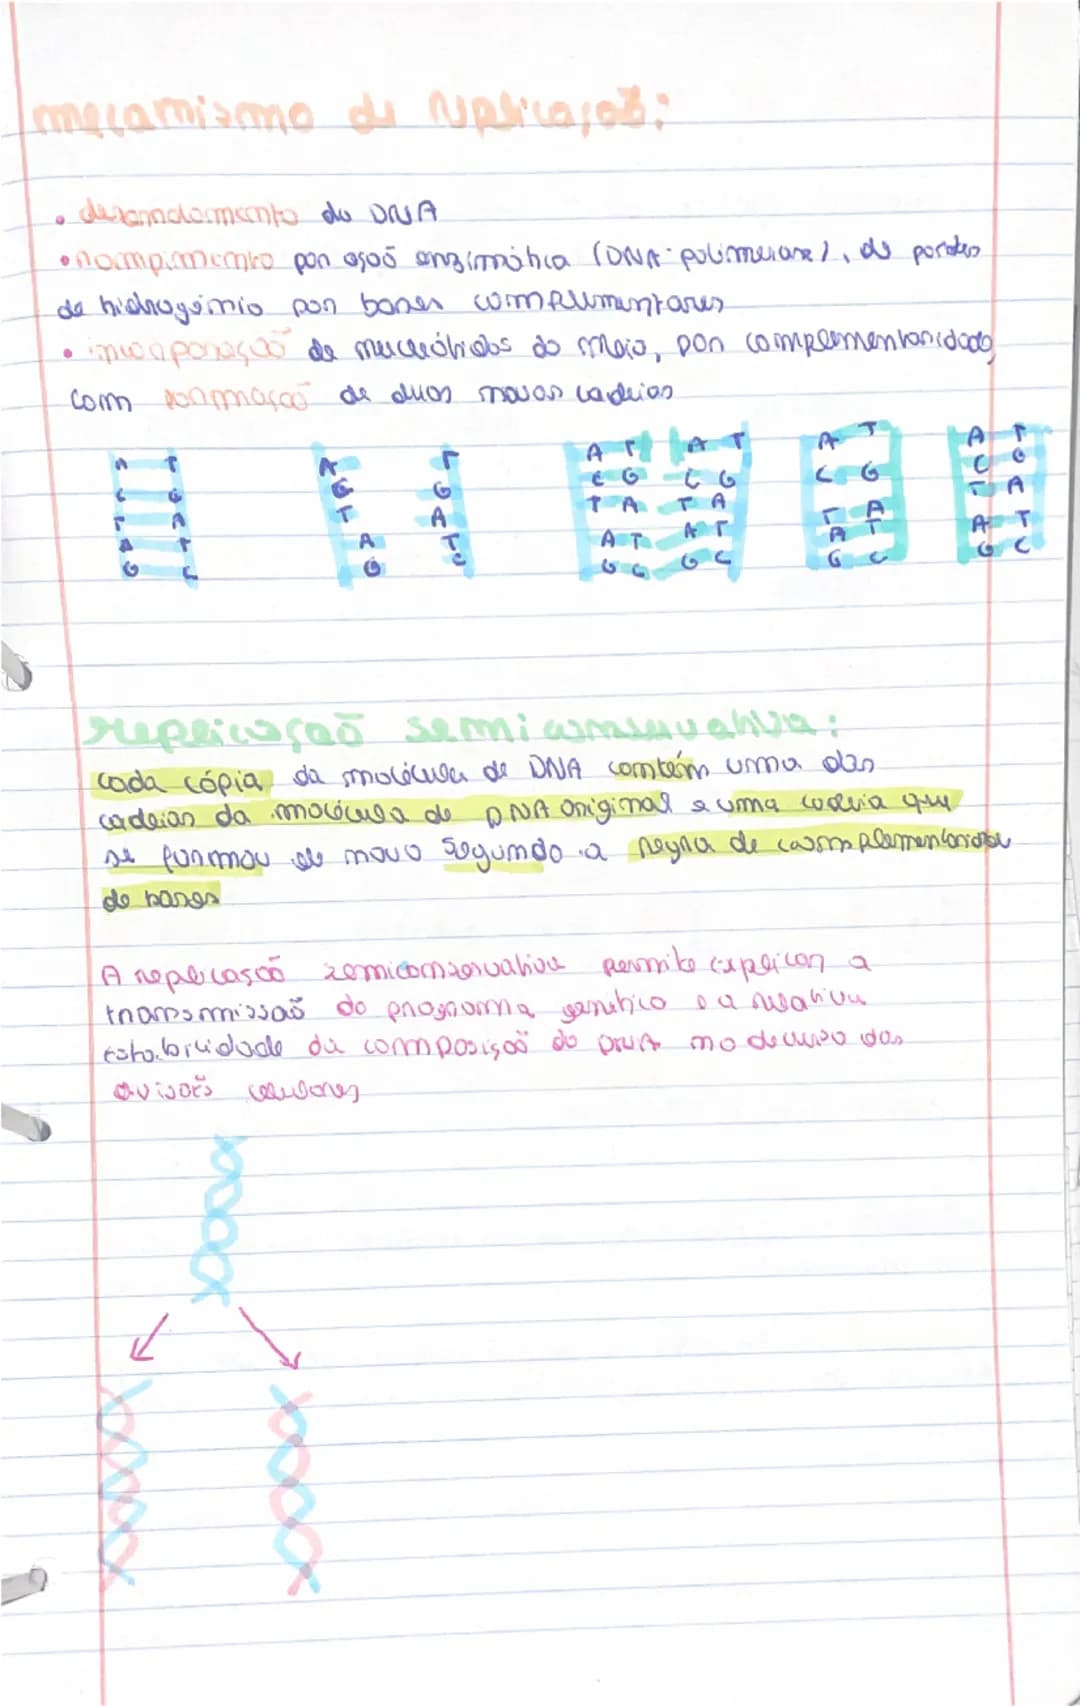 mecanismo de replicação:
• desenrolamento do DNA
• rompimento por ação enzimática (DNA-polimerase), de pontes
de hidrogénio por bases complementares
• incorporação de nucleótidos do meio, por complementaridade
com formação de duas novas cadeias
A T A T A T A T A T A T
C G C G C G C G C G C G
T A T A T A T A T A T A
A T A T A T A T A T A T
G C G C G C G C G C G C
replicação semiconservativa:
cada cópia da molécula de DNA contém uma das
cadeias da molécula de DNA original e uma cadeia que
se formou de novo segundo a regra de complementaridade
de bases
A replicação semiconservativa permite explicar a
transmissão do programa genético e a relativa
estabilidade da composição do DNA no decurso das
divisões celulares